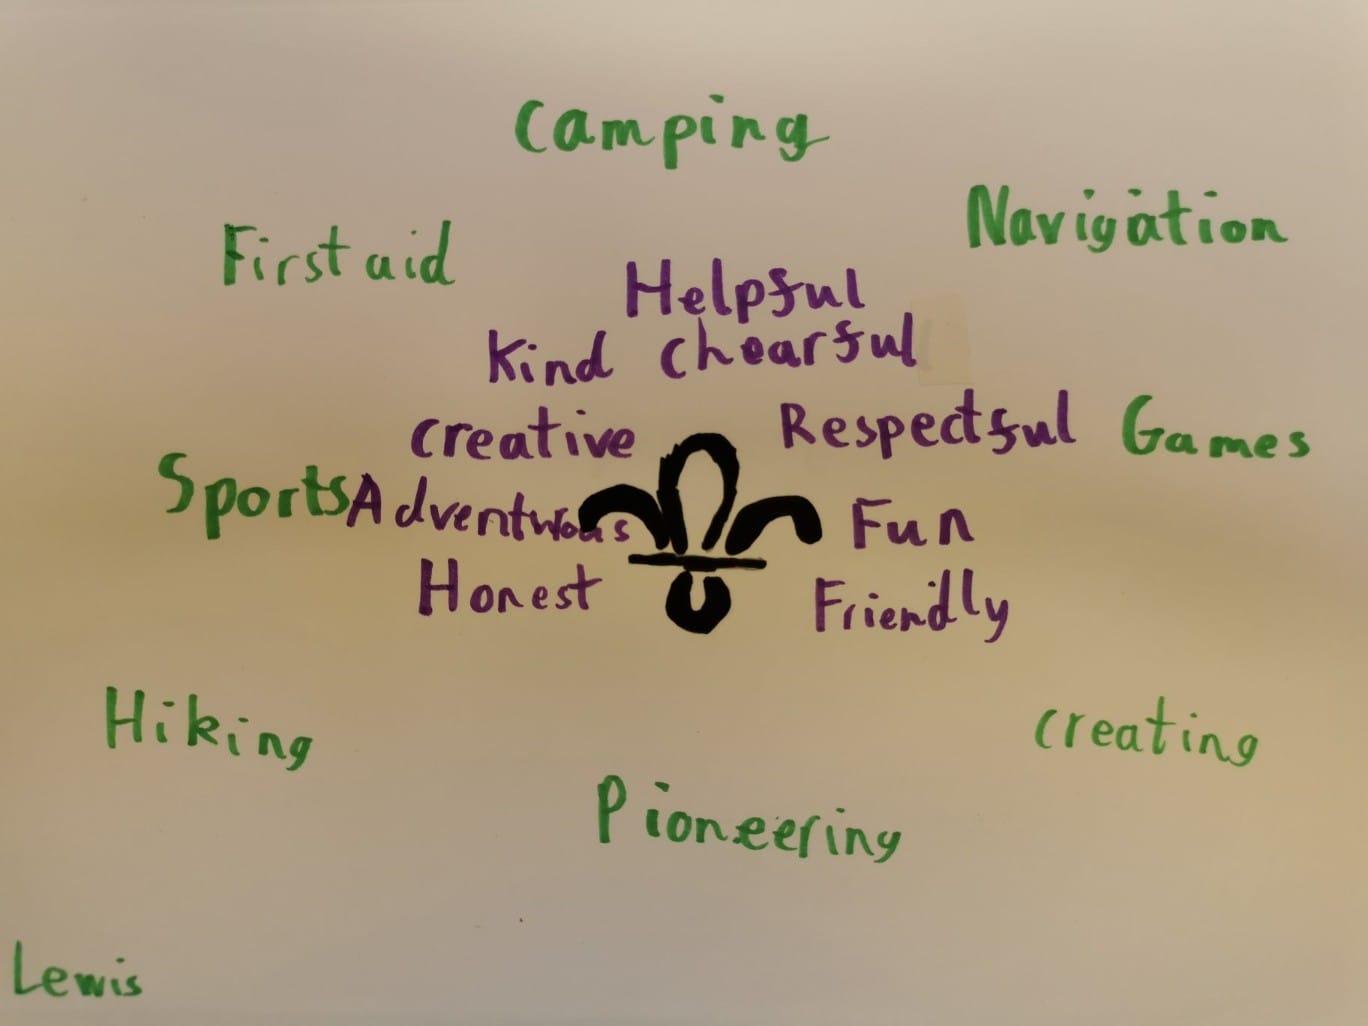 Camping
Navigation
First aid
Helpful
Kind Chearful
Creative Respectful Games
Sports Adventurous Fun
Honest Friendly
Hiking Creating
Pioneering
Lewis